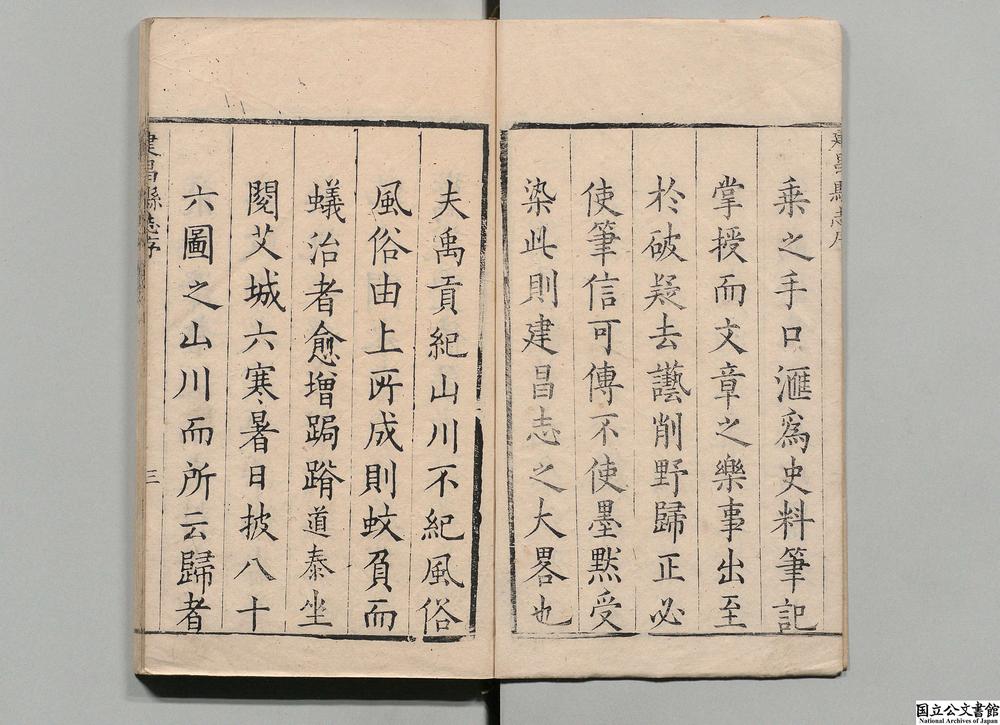 建昌縣志序
乗之手口滙爲史料筆記
掌授而文章之樂事出至
於破疑去蘙削野歸正必
使筆信可傳不使墨默受
染此則建昌志之大畧也
夫禹貢紀山川不紀風俗
風俗由上所成則蚊負而
蟻治者愈增跼蹐道泰坐
閱艾城六寒暑日披八十
六圖之山川而所云歸者
建昌縣志序
三
国立公文書館
National Archives of Japan